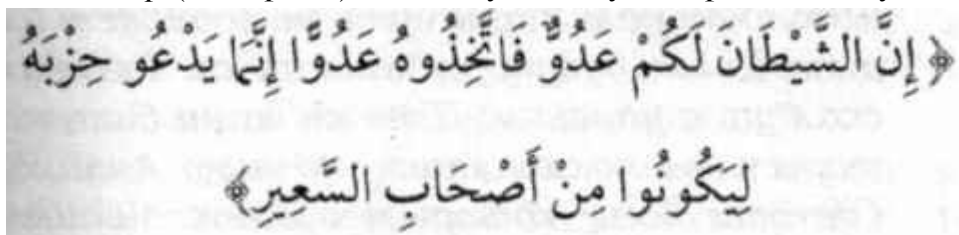 ﴿ إِنَّ الشَّيْطَانَ لَكُمْ عَدُوٌّ فَاتَّخِذُوهُ عَدُوًّا إِنَّمَا يَدْعُو حِزْبَهُ
لِيَكُونُوا مِنْ أَصْحَابِ السَّعِيرِ﴾